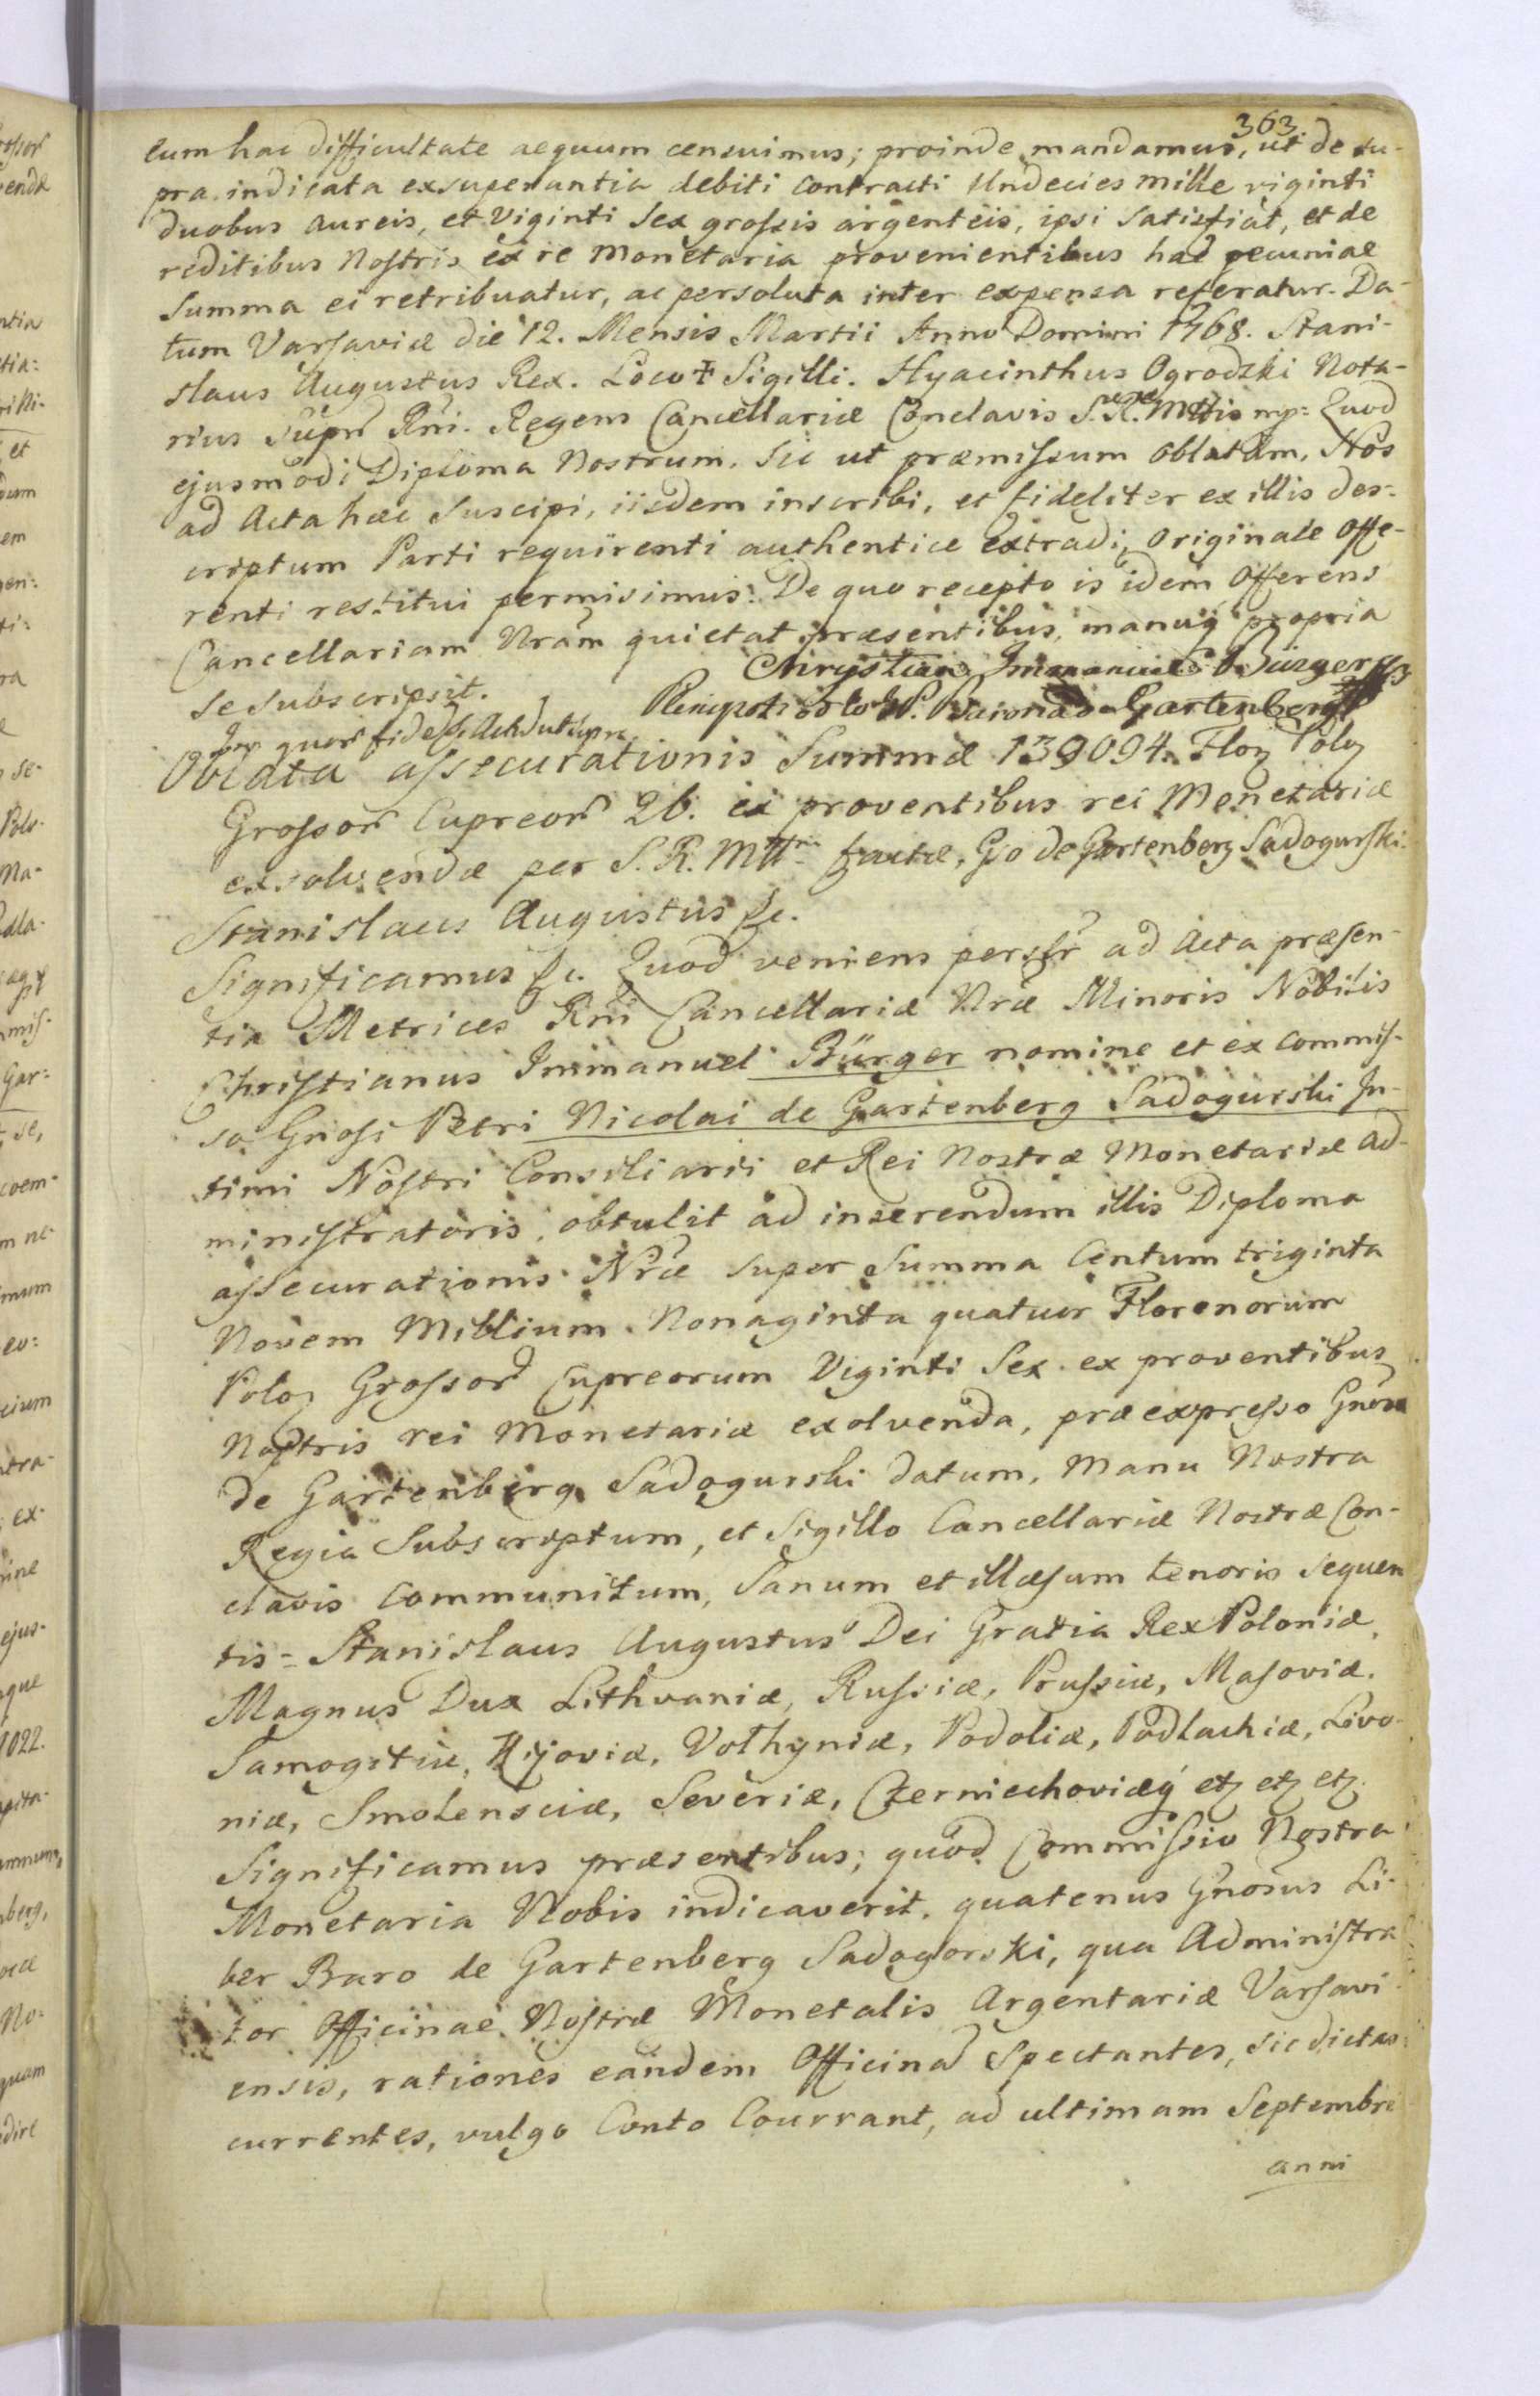 363.
eum hac difficultate aequum censuimus; proinde mandamus, ut de su-
pra indicata exsuperantia debiti contracti Undecies mille viginti
duobus aureis, et Viginti Sex grossis argenteis, ipsi Satisfiat, et de
reditibus Nostris ex re Monetaria provenientibus hac pecuniae
Summa ei retribuatur, ac persoluta inter expensa referatur. Da-
tum Varsaviæ die 12. Mensis Martii Anno Domini 1768. Stani-
slaus Augustus Rex. Loco ✝ Sigilli. Hyacinthus Ogrodzki Nota-
rius Supr Rni. Regens Cancellariæ Conclavis S. R. Mttis mp: Quod
ejusmodi Diploma Nostrum. Sic ut præmissum oblatum, Nos
ad Acta hæc Suscipi, iisdem inscribi, et fideliter ex illis des-
criptum Parti requirenti authentice extradi, Originale Offe-
renti restitui permisimus. De quo recepto is idem Offerens
Cancellariam Nram quietat præsentibus, manuq propria
se subscripsit.
Chrystian Immanuel Bürger
Gartenberg
Oblata assecurationis Summæ 139094. Flor Polo
Grossor Cupreor 26. ex proventibus rei Monetariæ
exsolvendæ per S. R. Mttm factæ, Go de Gartenberg Sadogurski.
Stanislaus Augustus &c.
Significamus &c. Quod veniens persltr ad Acta præsen-
tia Metrices Rni Cancellariæ Nræ Minoris Nobilis
Christianus Immanuel Bürger nomine et ex commis-
so Gnosi Petri Nicolai de Gartenberg Sadogurski In-
timi Nostri Consiliarii et Rei Nostræ Monetariæ Ad-
ministratoris, obtulit ad inserendum illis Diploma
assecurationis Nræ super Summa Centum triginta
Novem Millium Nonaginta quatuor Florenorum
Polo Grossor Cupreorum Viginti Sex ex proventibus
Nostris rei Monetariæ exolvenda, præexpresso Gnoso
de Gartenberg Sadogurski datum, Manu Nostra
Regia Subscriptum, et Sigillo Cancellariæ Nostræ Con-
clavis Communitum, Sanum et illæsum tenoris sequen
tis = Stanislaus Augustus Dei Gratia Rex Poloniæ,
Magnus Dux Lithvaniæ, Russiæ, Prussiæ, Masoviæ,
Samogitiæ, Kijoviæ, Volhyniæ, Podoliæ, Podlachiæ, Livo-
niæ, Smolensciæ, Severiæ, Czerniechoviæq etz etz etz.
Significamus præsentibus; quod Commissio Nostra
Monetaria Nobis indicaverit, quatenus Gnosus Li-
ber Baro de Gartenberg Sadogorski, qua Administra
tor Officinae Nostræ Monetalis Argentariæ Varsavi-
ensis, rationes eandem Officinā Spectantes, sic dictas
currentes, vulgo Conto Courrant, ad ultimam Septembri
anni